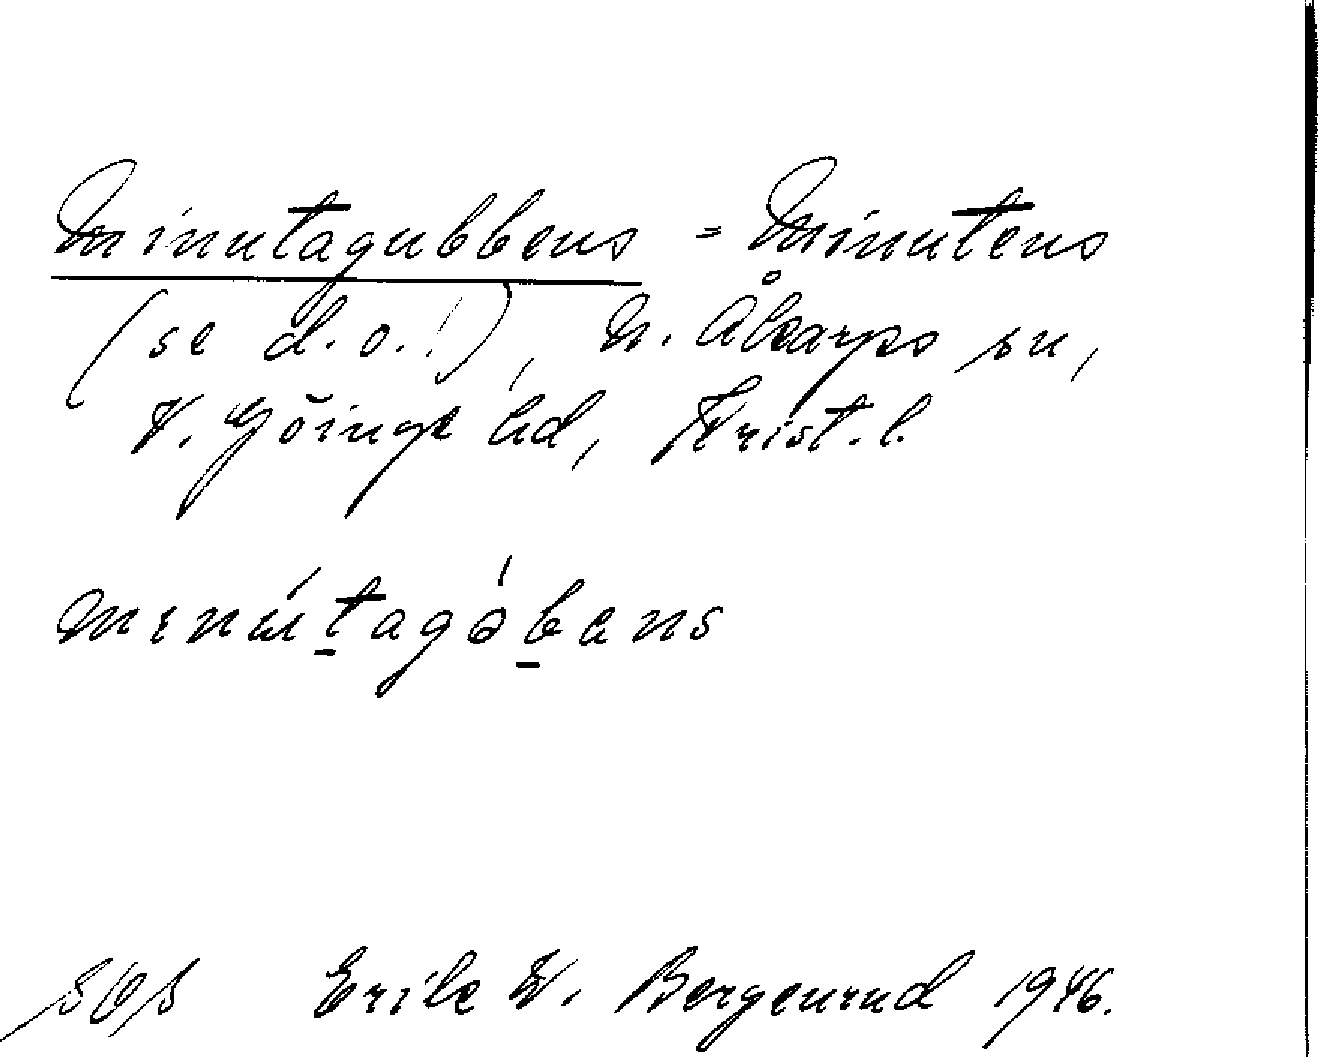 Minutagubbens = Minutens
(se d.o.!), N. Åkarps sn,
V. Göinge hd, Krist. l.
menútagǻbens
Erik W. Bergenrud 1946.